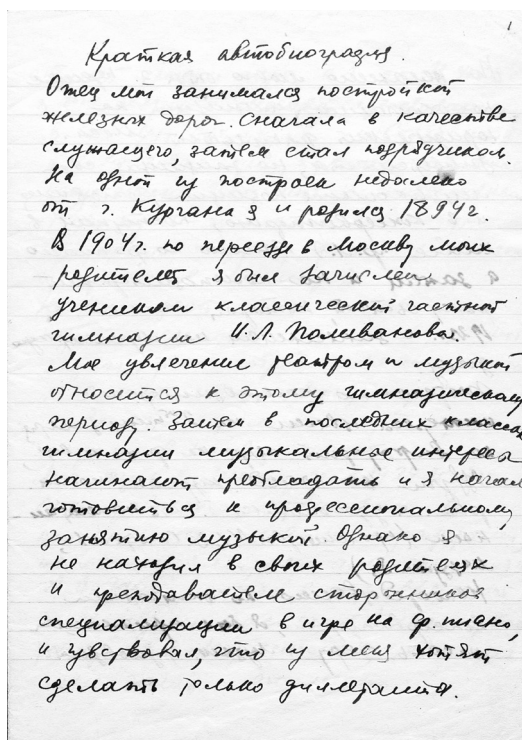 1
Краткая автобиография.
Отец мой занимался постройкой
железных дорог. Сначала в качестве
служащего, затем стал подрядчиком.
На одной из построек недалеко
от г. Кургана я и родился 1894 г.
В 1904 г. по переезде в Москву моих
родителей я был зачислен
учеником классической частной
гимназии И. Л. Поливанова.
Мое увлечение театром и музыкой
относится к этому гимназическому
периоду. Затем в последних классах
гимназии музыкальные интересы
начинают преобладать и я начал
готовиться к профессиональному
занятию музыкой. Однако я
не находил в своих родителях
и преподавателем сторонников
специализации в игре на ф. пиано,
и чувствовал, что из меня хотят
сделать только дилетанта.